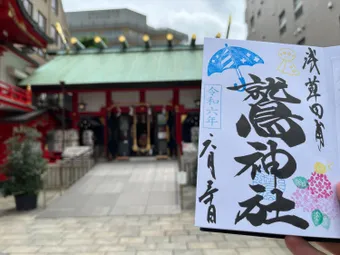 浅草田甫
鷲神社
令和六年
六月壱日